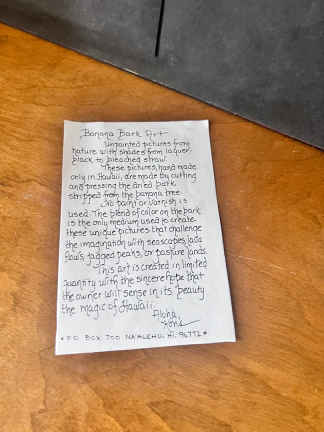 Banana Bark Art
Unpainted pictures from
nature with shades from laquer
black to bleached straw.
These pictures, hand made
only in Hawaii, are made by cutting
and pressing the dried bark
stripped from the banana tree.
No paint or varnish is
used. The blend of color on the bark
is the only medium used to create
these unique pictures that challenge
the imagination with seascapes, lava
flows, jagged peaks, or pasture lands.
This art is created in limited
quantity with the sincere hope that
the owner will sense in its beauty
the magic of Hawaii.
Aloha,
P.O. BOX 700 NA'ALEHU, HI. 96772